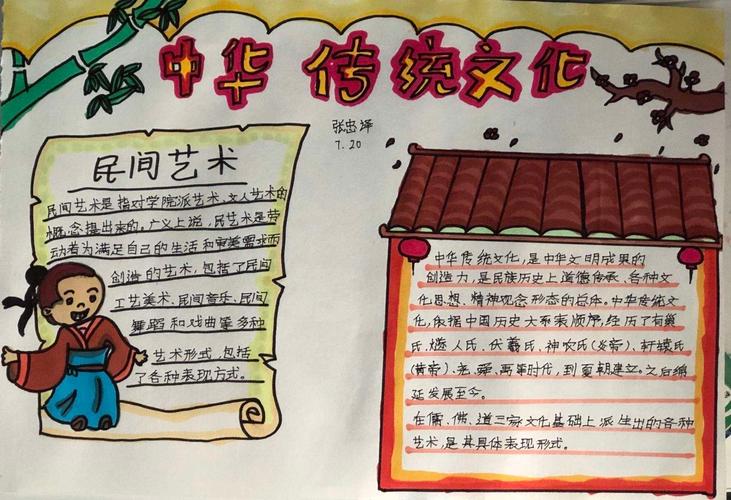 中华 传统文化
张忠泽
7.20
民间艺术
民间艺术是指对学院派艺术、文人艺术的
概念提出来的。广义上说,民艺术是劳
动者为满足自己的生活和审美需求而
创造的艺术,包括了民间
工艺美术、民间音乐、民间
舞蹈和戏曲等多种
艺术形式,包括
了各种表现方式。
中华传统文化,是中华文明成果的
创造力,是民族历史上道德传承、各种文
化思想、精神观念形态的总体。中华传统文
化,依据中国历史大系表顺序,经历了有巢
氏、燧人氏、伏羲氏、神农氏(炎帝)、轩辕氏
(黄帝)、尧、舜、禹等时代,到夏朝建立。之后绵
延发展至今。
在儒、佛、道三家文化基础上派生出的各种
艺术,是其具体表现形式。